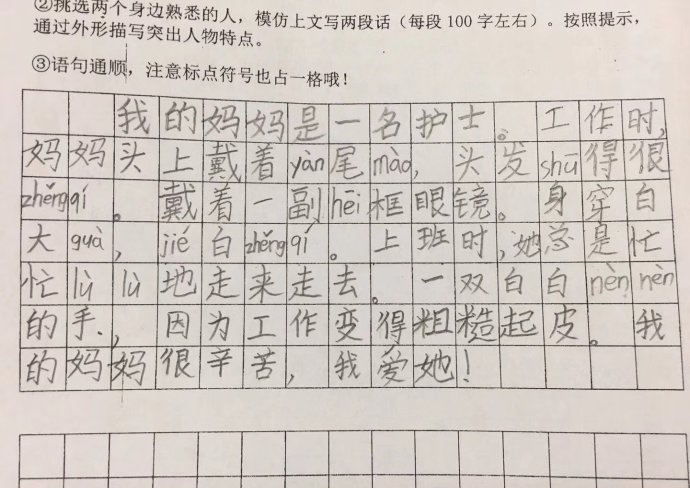 ②挑选两个身边熟悉的人，模仿上文写两段话（每段 100 字左右）。按照提示，
通过外形描写突出人物特点。
③语句通顺，注意标点符号也占一格哦！
我的妈妈是一名护士。工作时，
妈妈头上戴着yàn尾mào，头发shū得很
zhěngqí。戴着一副hēi框眼镜。身穿白
大guà，jié白zhěngqí。上班时，她总是忙
忙lù lù地走来走去。一双白白nèn nèn
的手，因为工作变得粗糙起皮。我
的妈妈很辛苦，我爱她！